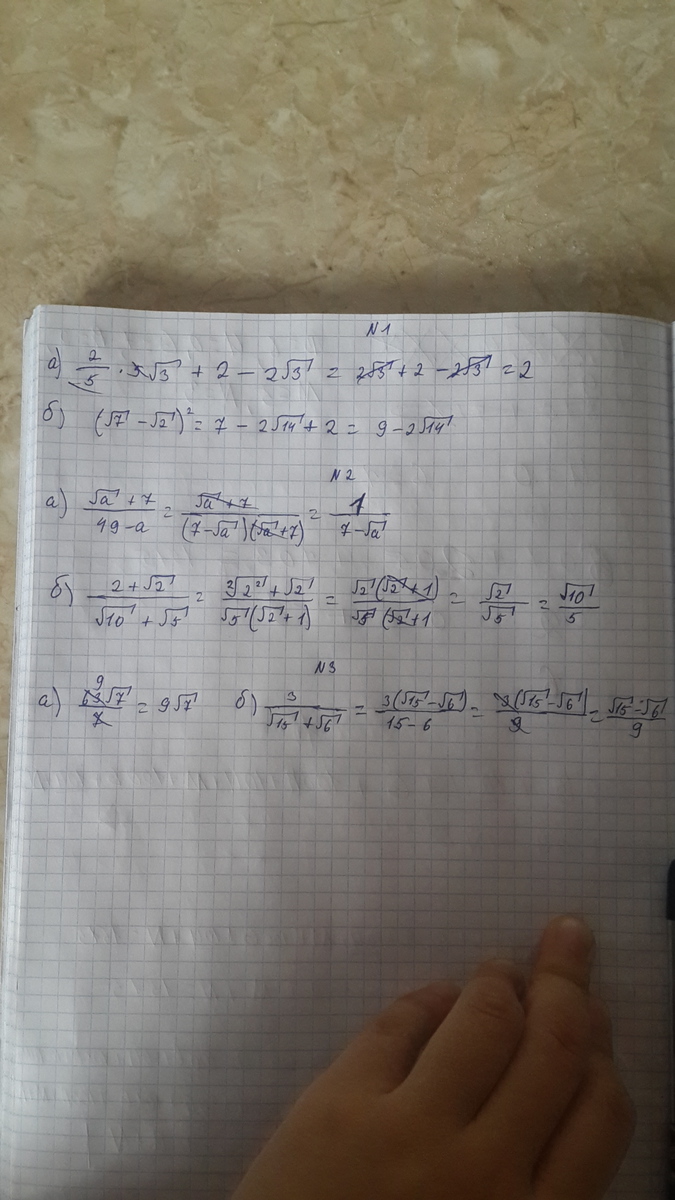 N1
а) 2/5 · 5√3 + 2 − 2√3 = 2√3 + 2 − 2√3 = 2
б) (√7 − √2)² = 7 − 2√14 + 2 = 9 − 2√14
N2
а) (√a + 7)/(49 − a) = (√a + 7)/((7 − √a)(√a + 7)) = 1/(7 − √a)
б) (2 + √2)/(√10 + √5) = (∛2² + √2)/(√5(√2 + 1)) = (√2(√2 + 1))/(√5(√2 + 1) = √2/√5 = √10/5
N3
а) 9 63√7/7 = 9√7 б) 3/(√15 + √6) = 3(√15 − √6)/(15 − 6) = 3(√15 − √6)/9 = (√15 − √6)/9